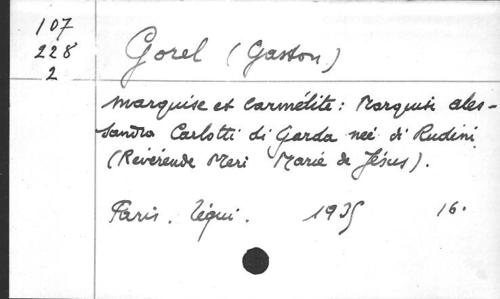 107
228
2
Gorel (Gaston)
marquise et carmélite: Marquise ales-
sandra Carlotti di Garda neé di Rudini
(Révérende Meri Marie de Jésus).
Paris. Téqui. 1935 16.